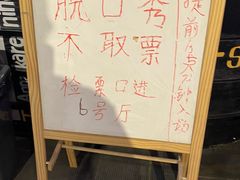 脱口秀
不取票
检票口进
6号厅
提前15分钟入场